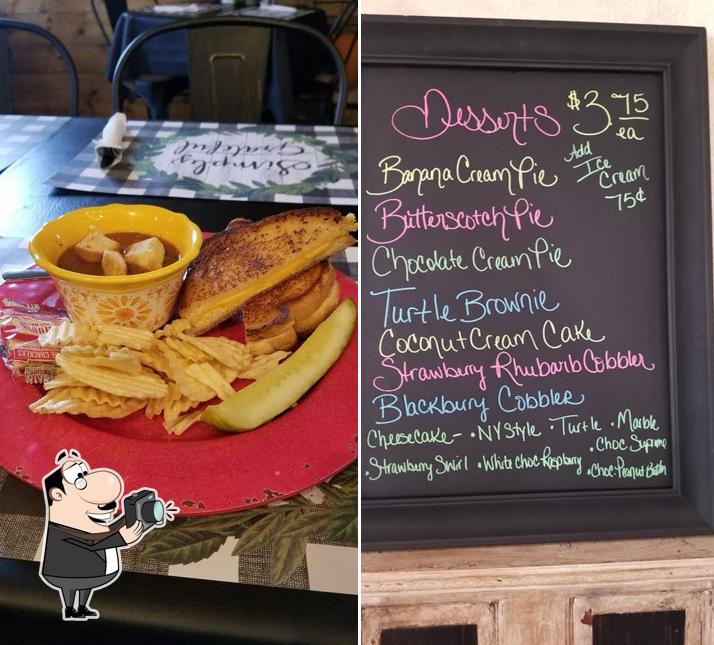 Simply
Grateful
HOUSE
CRACKERS
Desserts
$3.75
ea
Add
Ice
Cream
75¢
Banana Cream Pie
Butterscotch Pie
Chocolate Cream Pie
Turtle Brownie
Coconut Cream Cake
Strawbury Rhubarb Cobbler
Blackbury Cobbler
Cheesecake- •NY Style •Turtle •Marble
•Choc Supreme
•Strawberry Swirl •White choc-Raspberry •Choc-Peanut Butter